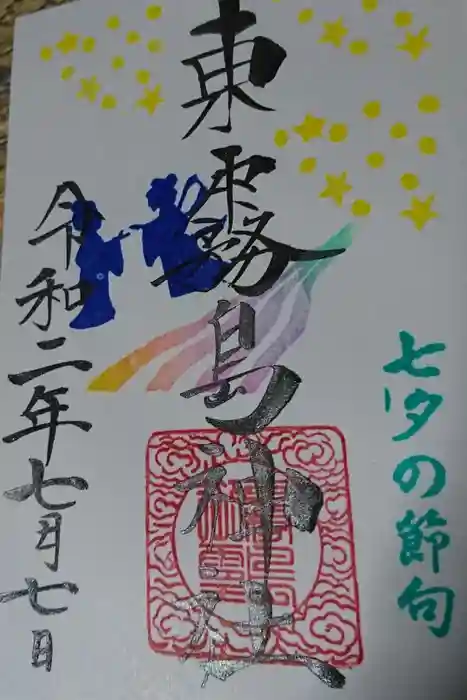 七夕の節句
東霧島神社
令和二年七月七日